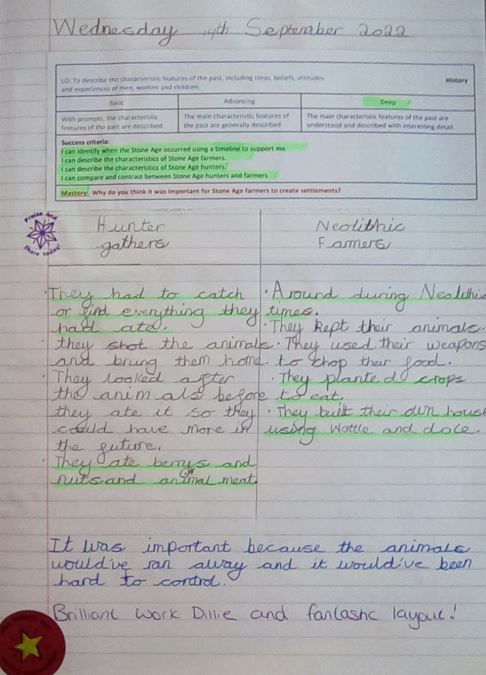 Wednesday 14th September 2022
LO: To describe the characteristic features of the past, including ideas, beliefs, attitudes and experiences of men, women and children.
History
Basic
Advancing
Deep
With prompts, the characteristic features of the past are described
The main characteristic features of the past are generally described
The main characteristic features of the past are understood and described with interesting detail
Success criteria:
I can identify when the Stone Age occurred using a timeline to support me.
I can describe the characteristics of Stone Age farmers.
I can describe the characteristics of Stone Age hunters.
I can compare and contrast between Stone Age hunters and farmers.
Mastery: Why do you think it was important for Stone Age farmers to create settlements?
Hunter
gathers
· They had to catch
or find everything they
had ate.
· they shot the animals
and brung them home.
· They looked after
the animals before
they ate it so they
could have more in
the future.
· They ate berrys and
nuts and animal meat.
Neolithic
Farmers
· Around during Neolithic
times.
· They kept their animals.
· They used their weapons
to chop their food.
· They planted crops
to eat.
· They built their own house
using wottle and dole.
It was important because the animals
would've ran away and it would've been
hard to control.
Brilliant work Dillie and fantastic layout!